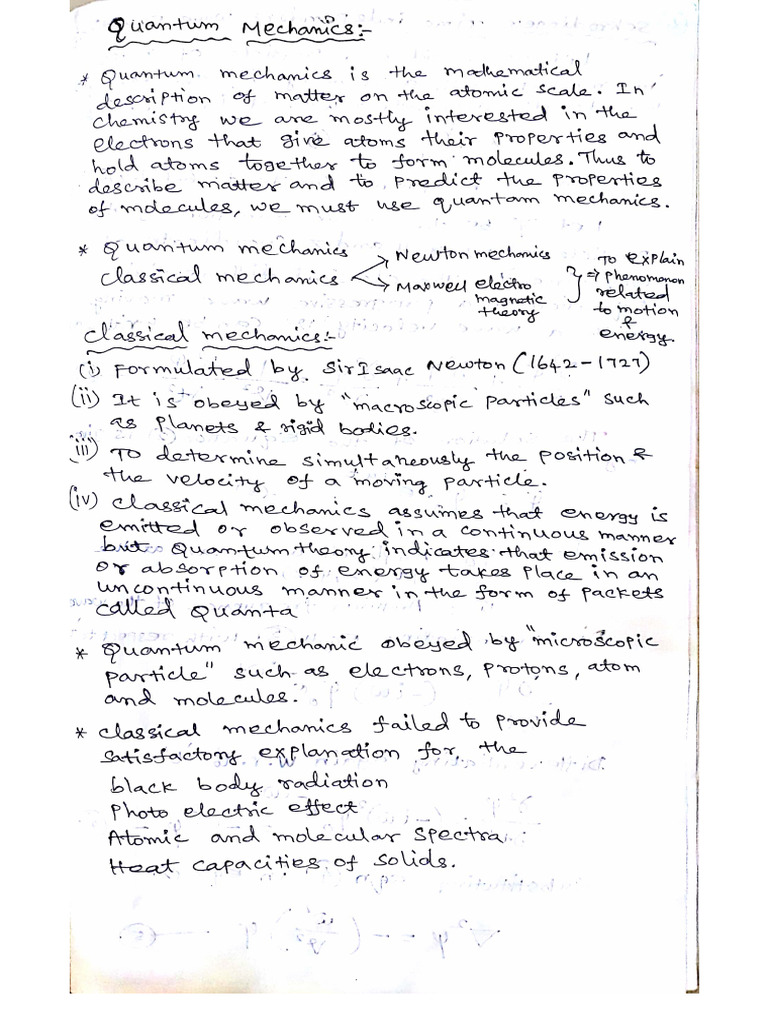 Quantum Mechanics:-
* Quantum mechanics is the mathematical
description of matter on the atomic scale. In
chemistry we are mostly interested in the
electrons that give atoms their properties and
hold atoms together to form molecules. Thus to
describe matter and to predict the properties
of molecules, we must use quantam mechanics.
* Quantum mechanics
classical mechanics
Newton mechanics
Maxwell electro
magnetic
theory
} ⇒
To explain
phenomonon
related
to motion
&
energy.
classical mechanics:-
(i) Formulated by Sir Isaac Newton (1642-1727)
(ii) It is obeyed by "macroscopic particles" such
as planets & rigid bodies.
(iii) To determine simultaneously the position &
the velocity of a moving particle.
(iv) classical mechanics assumes that energy is
emitted or observed in a continuous manner
but Quantum theory indicates that emission
or absorption of energy takes place in an
uncontinuous manner in the form of packets
called Quanta
* Quantum mechanic obeyed by "microscopic
particle" such as electrons, protons, atom
and molecules.
* classical mechanics failed to provide
satisfactory explanation for the
black body radiation
Photo electric effect
Atomic and molecular spectra
Heat capacities of solids.